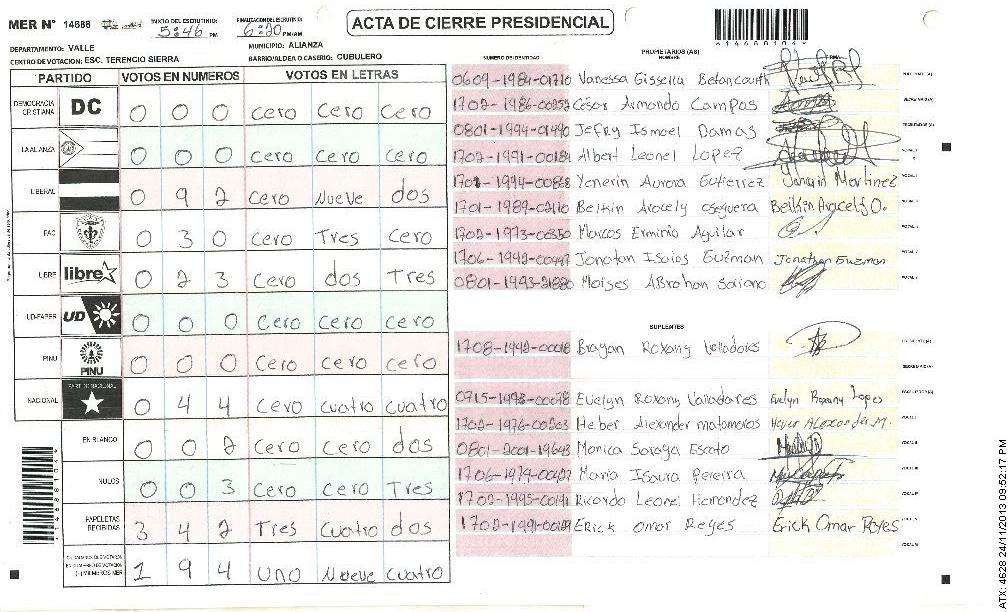 MER N° 14688
INICIO DEL ESCRUTINIO: 5:46 PM
FINALIZACION DEL ESCRUTINIO: 6:20 PM/AM
ACTA DE CIERRE PRESIDENCIAL
DEPARTAMENTO: VALLE
MUNICIPIO: ALIANZA
CENTRO DE VOTACION: ESC. TERENCIO SIERRA
BARRIO/ALDEA O CASERIO: CUBULERO
PARTIDO VOTOS EN NUMEROS VOTOS EN LETRAS
DEMOCRACIA CRISTIANA DC 0 0 0 Cero Cero Cero
LA ALIANZA 0 0 0 Cero Cero Cero
LIBERAL 0 9 2 Cero Nueve dos
PAC 0 3 0 Cero Tres Cero
LIBRE libre 0 2 3 Cero dos Tres
UD-FAPER UD 0 0 0 Cero Cero Cero
PINU PINU 0 0 0 Cero Cero Cero
NACIONAL PARTIDO NACIONAL 0 4 4 Cero Cuatro Cuatro
EN BLANCO 0 0 2 Cero Cero dos
NULOS 0 0 3 Cero Cero Tres
PAPELETAS RECIBIDAS 3 4 2 Tres Cuatro dos
1 9 4 Uno Nueve Cuatro
PROPIETARIOS (AS)
NUMERO DE IDENTIDAD NOMBRE FIRMA
0609-1984-01710 Vanessa Gissella Betancourth
César Armando Campos
0801-1994-01490 Jefry Ismael Damas
1702-1991-00184 Albert Leonel Lopez
Yenerin Aurora Gutierrez Martinez
1701-1989-02110 Belkin Aracely oseguera Belkin Aracely O.
1702-1973-00350 Marcos Erminio Aguilar
Jonatan Isaias Guzman Jonathan Guzman
0801-1993-21880 Moises Abrahan Soriano
SUPLENTES
Brayan Roxany Valladares
Evelyn Roxany Valladares Evelyn Roxany Lopez
1702-1976-00203 Heber Alexander matamoros Heber Alexander M.
Monica Soraya Escoto
Maria Isaura Pereira
Ricardo Leonel Hernandez
Erick Omar Reyes Erick Omar Reyes
14688104
ATX: 4628 24/11/2013 09:52:17 PM